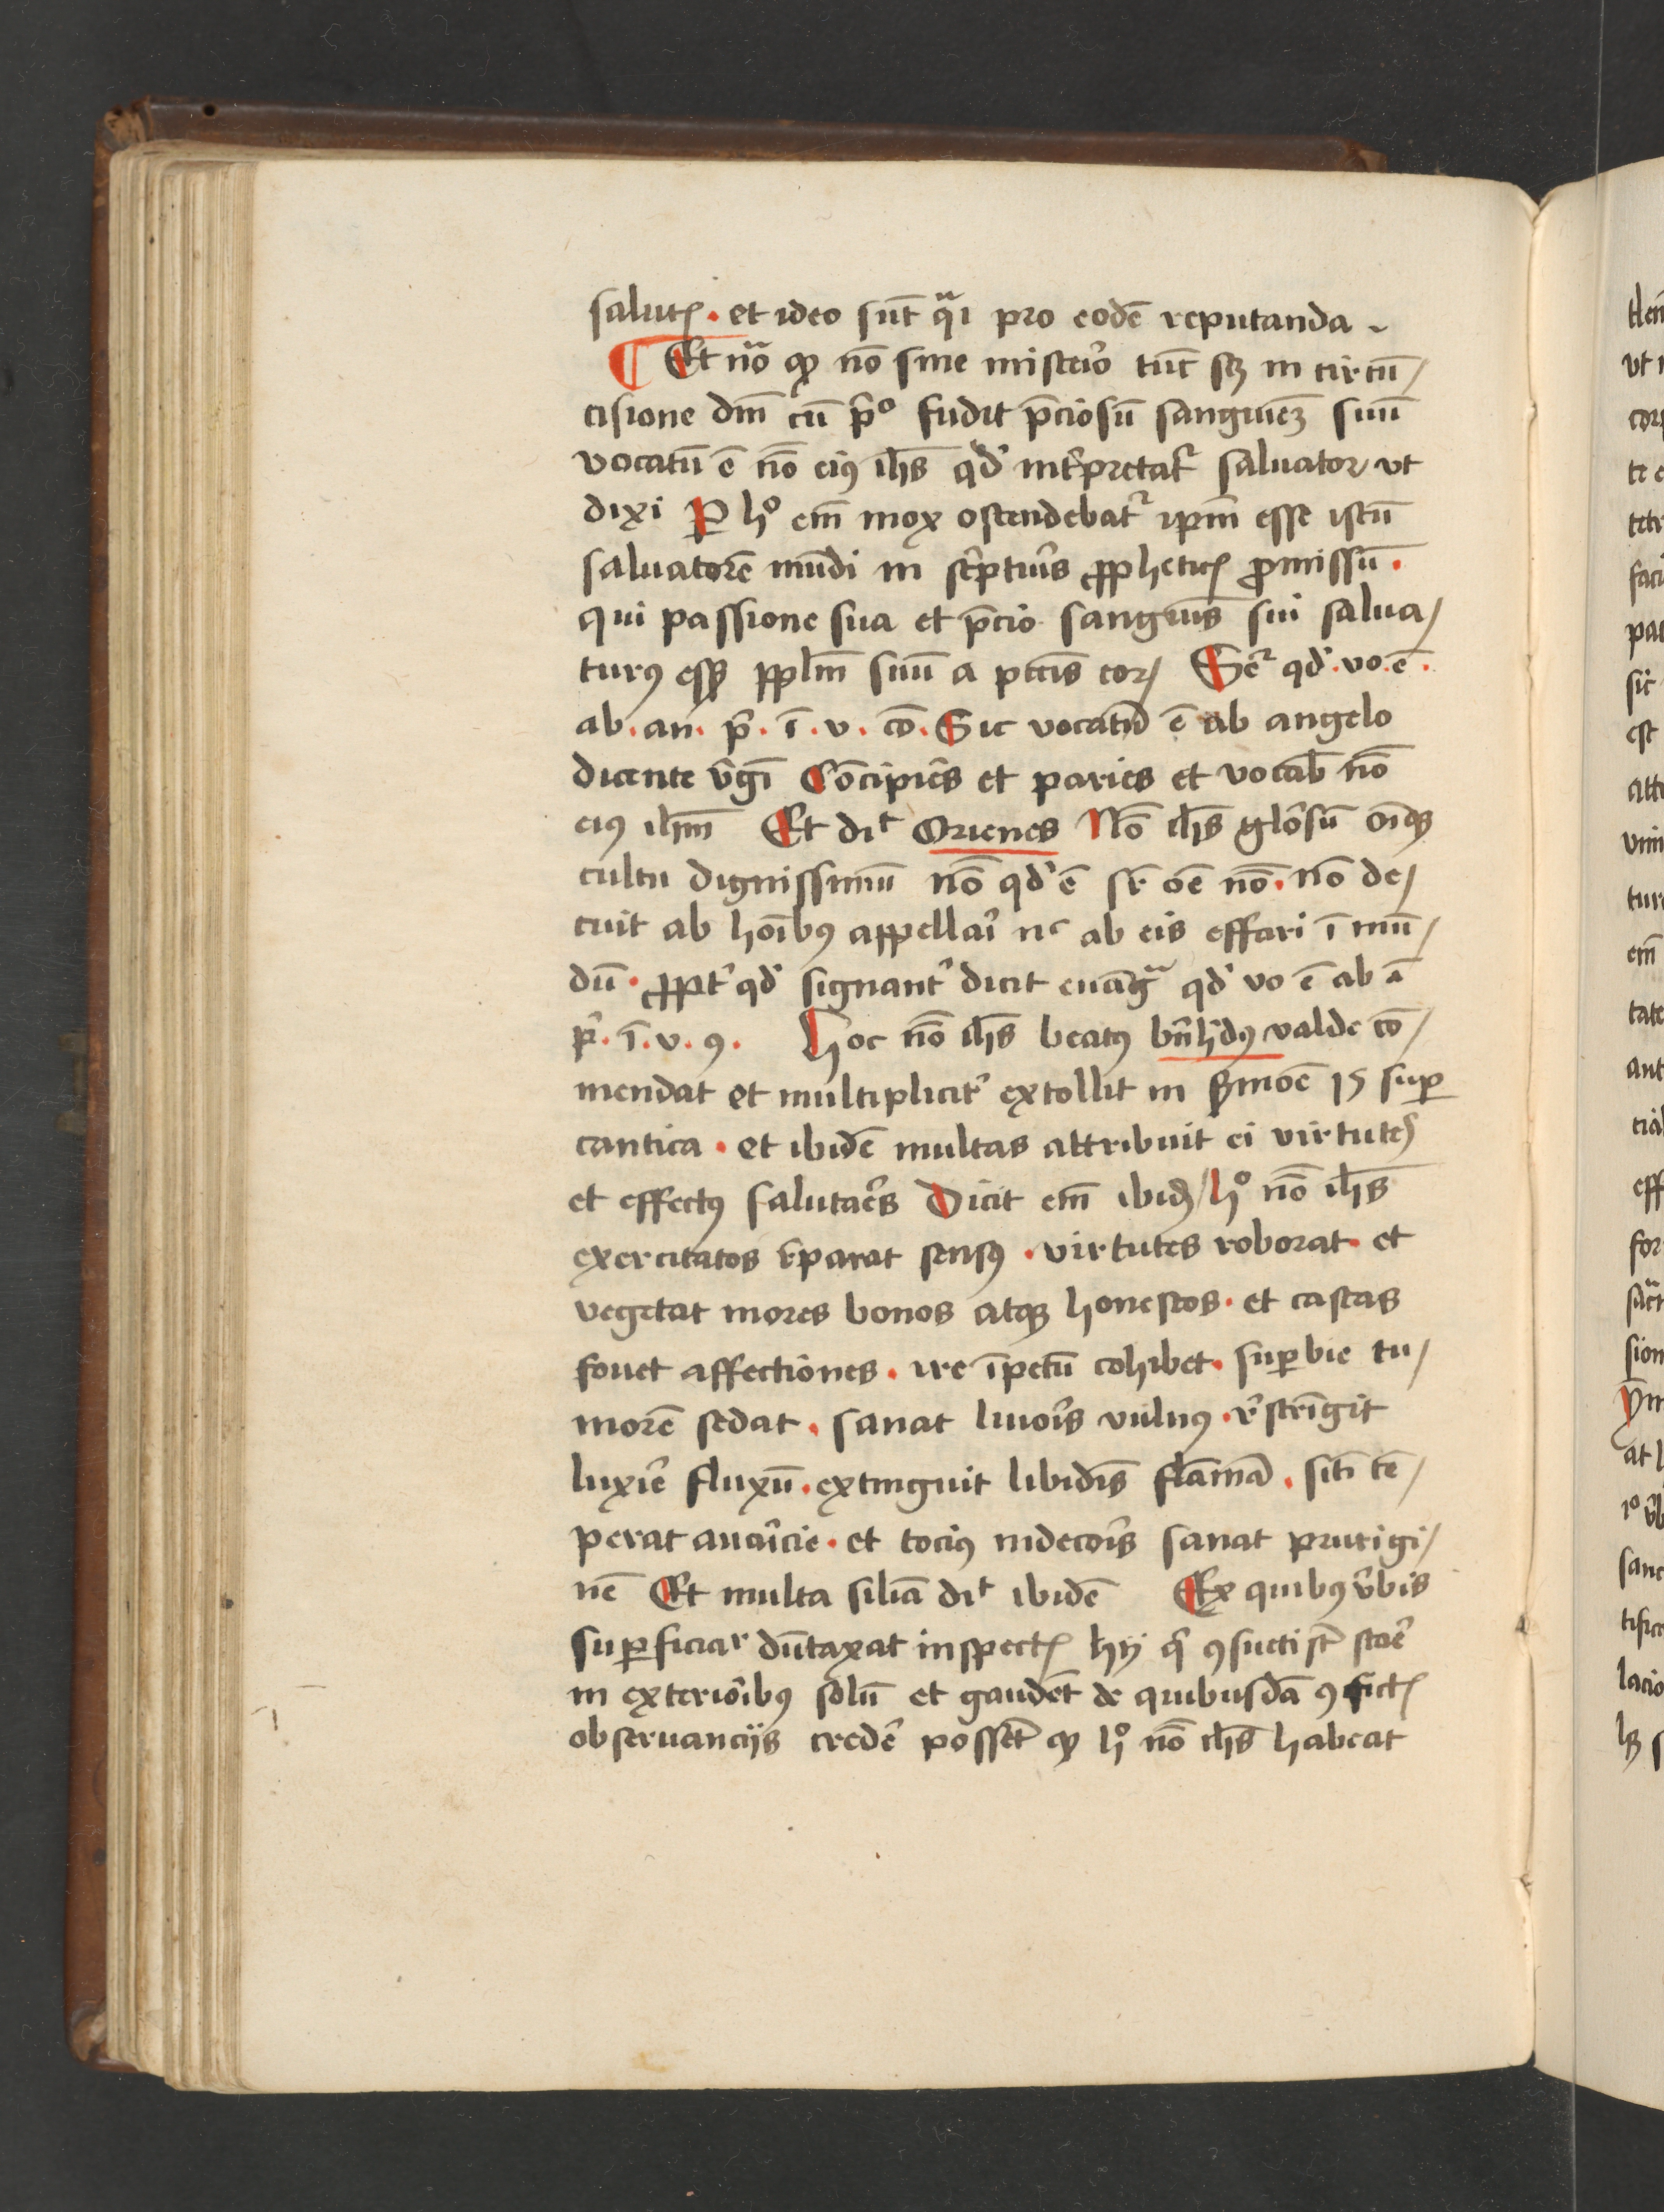 salutꝭ · et ideo sūt qᵃi pro eodē reputanda
¶ Et nͣo ꝙ nō sine misterͦio tūc sꝫ in circū/
cisione dm̄ cū p̄ᵒ fudit p̄ciosū sanguinēꝫ suū
vocatū ē nō eiꝰ ih̄s qd̓ int̓pretat᷑ saluator vt
dixi P̲ hͦ em̄ mox ostendebat᷑ ip̄m esse istū
saluatorē mūdi in sc̓ptur̓s ꝓpheticꝭ ꝓmissū ·
qui passione sua et p̄cio sanguīs sui salua/
turꝰ essꝫ pplm̄ suū a pctis̄ eoꝝ Seͬ qd̓ · vo · ē ·
ab · an · p̓ · ī · v · cō · Sic vocatū ē ab angelo
dicente v̓gī Cōcipiēs et paries et vocab̄ nō
eiꝰ ih̄m Et diᵗ Orienes Nō ih̄s glōsū oīqꝫ
cultu dignissimū nō qd̓ ē sr̄ oē nō · nō de/
cuit ab hoībꝰ appellar̓i nᶜ ab eis effari ī mū/
dū · ꝓpt̓ qd̓ signant̓ dicit euāgͣ qd̓ vo ē ab ā
p̓ · ī · v · ꝯ · Hoc nō ih̄s beatꝰ bn̄hdꝰ valde cō/
mendat et multiplicit̓ extollit in s̓moē 15 suꝑ
cantica · et ibidē multas attribuit ei virtutēs
et effectꝰ salutar̓es Dicit em̄ ibidꝫ / hͦ nō ih̄s
exercitatos r̓parat sensꝰ · virtutes roborat · et
vegetat mores bonos atqꝫ honestos · et castas
fouet affectiones · ire īpetū cohibet · suꝑbie tu/
morē sedat · sanat liuor̓s vulnꝰ · r̓strīgit
luxur̓ie fluxū · extinguit libidīs flāmā · sitī tē/
perat auar̓icie · et tociꝰ indecor̓s sanat prurigi/
nē Et multa silīa diᵗ ibidē Ex quibꝰ v̓bis
suꝑficiaͬ dūtaxat inspectꝭ hij q̓ ꝯsueti st̄ star̓e
in exterior̓ibꝰ solū et gaudēt de quibusdā ꝯfictꝭ
obseruancijs creder̓e possēt ꝙ hͦ nō ih̄s habeat